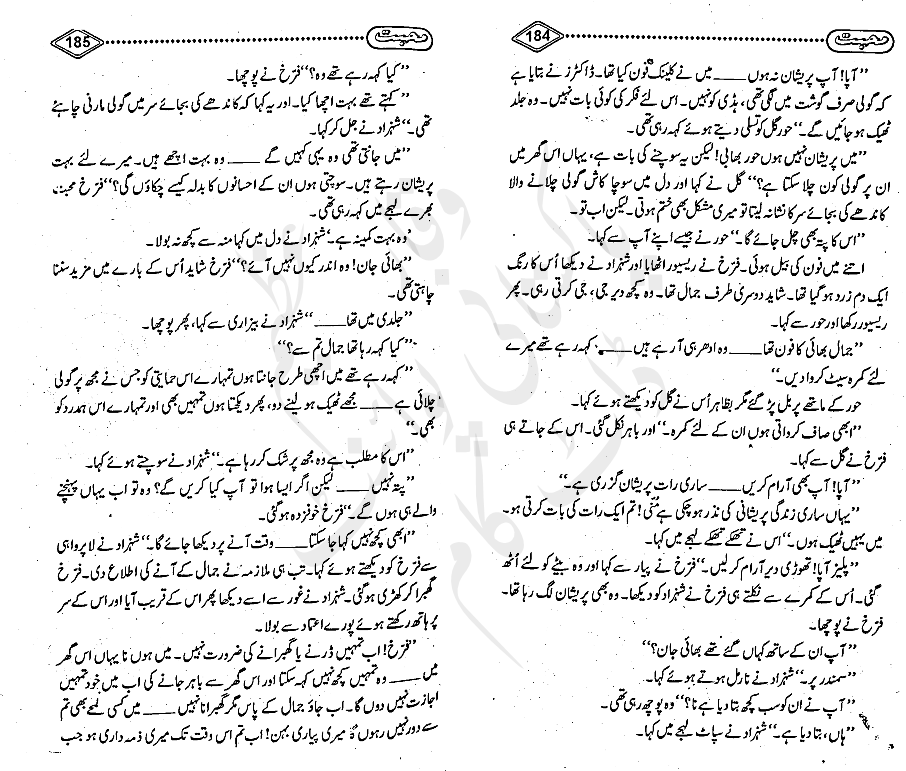 محبت 184
”آپا! آپ پریشان نہ ہوں ____ میں نے کلینک فون کیا تھا۔ ڈاکٹرز نے بتایا ہے
کہ گولی صرف گوشت میں لگی تھی، ہڈی کو نہیں۔ اس لئے فکر کی کوئی بات نہیں۔ وہ جلد
ٹھیک ہو جائیں گے۔“ حور گل کو تسلی دیتے ہوئے کہہ رہی تھی۔
”میں پریشان نہیں ہوں حور بھابی! لیکن یہ سوچنے کی بات ہے، یہاں اس گھر میں
ان پر گولی کون چلا سکتا ہے؟“ گل نے کہا اور دل میں سوچا کاش گولی چلانے والا
کاندھے کی بجائے سر کا نشانہ لیتا تو میری مشکل بھی ختم ہوتی۔ لیکن اب تو۔
”اس کا پتہ بھی چل جائے گا۔“ حور نے جیسے اپنے آپ سے کہا۔
اتنے میں فون کی بیل ہوئی۔ فرخ نے ریسیور اٹھایا اور شہزاد نے دیکھا اُس کا رنگ
ایک دم زرد ہو گیا تھا۔ شاید دوسری طرف جمال تھا۔ وہ کچھ دیر جی، جی کرتی رہی۔ پھر
ریسیور رکھا اور حور سے کہا۔
”جمال بھائی کا فون تھا ____ وہ ادھر ہی آ رہے ہیں ____ کہہ رہے تھے میرے
لئے کمرہ سیٹ کروا دیں۔“
حور کے ماتھے پر بل پڑ گئے مگر بظاہر اُس نے گل کو دیکھتے ہوئے کہا۔
”ابھی صاف کرواتی ہوں ان کے لئے کمرہ۔“ اور باہر نکل گئی۔ اس کے جاتے ہی
فرخ نے گل سے کہا۔
”آپا! آپ بھی آرام کریں ____ ساری رات پریشان گزری ہے۔“
”یہاں ساری زندگی پریشانی کی نذر ہو چکی ہے منی! تم ایک رات کی بات کرتی ہو۔
میں یہیں ٹھیک ہوں۔“ اس نے تھکے تھکے لہجے میں کہا۔
”پلیز آپا! تھوڑی دیر آرام کر لیں۔“ فرخ نے پیار سے کہا اور وہ بیٹے کو لئے اُٹھ
گئی۔ اُس کے کمرے سے نکلتے ہی فرخ نے شہزاد کو دیکھا۔ وہ بھی پریشان لگ رہا تھا۔
فرخ نے پوچھا۔
”آپ ان کے ساتھ کہاں گئے تھے بھائی جان؟“
”سمندر پر۔“ شہزاد نے نارمل ہوتے ہوئے کہا۔
”آپ نے ان کو سب کچھ بتا دیا ہے نا؟“ وہ پوچھ رہی تھی۔
”ہاں، بتا دیا ہے۔“ شہزاد نے سپاٹ لہجے میں کہا۔
محبت 185
”کیا کہہ رہے تھے وہ؟“ فرخ نے پوچھا۔
”کہتے تھے بہت اچھا کیا۔ اور یہ کہا کہ کاندھے کی بجائے سر میں گولی مارنی چاہئے
تھی۔“ شہزاد نے جل کر کہا۔
”میں جانتی تھی وہ یہی کہیں گے ____ وہ بہت اچھے ہیں۔ میرے لئے بہت
پریشان رہتے ہیں۔ سوچتی ہوں ان کے احسانوں کا بدلہ کیسے چکاؤں گی؟“ فرخ محبت
بھرے لہجے میں کہہ رہی تھی۔
’وہ بہت کمینہ ہے۔‘ شہزاد نے دل میں کہا منہ سے کچھ نہ بولا۔
”بھائی جان! وہ اندر کیوں نہیں آئے؟“ فرخ شاید اُس کے بارے میں مزید سننا
چاہتی تھی۔
”جلدی میں تھا ____“ شہزاد نے بیزاری سے کہا، پھر پوچھا۔
”کیا کہہ رہا تھا جمال تم سے؟“
”کہہ رہے تھے میں اچھی طرح جانتا ہوں تمہارے اس حمایتی کو جس نے مجھ پر گولی
چلائی ہے ____ مجھے ٹھیک ہو لینے دو، پھر دیکھتا ہوں تمہیں بھی اور تمہارے اس ہمدرد کو
بھی۔“
”اس کا مطلب ہے وہ مجھ پر شک کر رہا ہے۔“ شہزاد نے سوچتے ہوئے کہا۔
”پتہ نہیں ____ لیکن اگر ایسا ہوا تو آپ کیا کریں گے؟ وہ تو اب یہاں پہنچنے
والے ہی ہوں گے۔“ فرخ خوفزدہ ہو گئی۔
”ابھی کچھ نہیں کہا جا سکتا ____ وقت آنے پر دیکھا جائے گا۔“ شہزاد نے لاپرواہی
سے فرخ کو دیکھتے ہوئے کہا۔ تب ہی ملازمہ نے جمال کے آنے کی اطلاع دی۔ فرخ
گھبرا کر کھڑی ہو گئی۔ شہزاد نے غور سے اسے دیکھا پھر اس کے قریب آیا اور اس کے سر
پر ہاتھ رکھتے ہوئے پورے اعتماد سے بولا۔
”فرخ! اب تمہیں ڈرنے یا گھبرانے کی ضرورت نہیں۔ میں ہوں نا یہاں اس گھر
میں ____ وہ تمہیں کچھ نہیں کہہ سکتا اور اس گھر سے باہر جانے کی اب میں خود تمہیں
اجازت نہیں دوں گا۔ اب جاؤ جمال کے پاس مگر گھبرانا نہیں ____ میں کسی لمحے بھی تم
سے دور نہیں رہوں گا میری پیاری بہن! اب تم اس وقت تک میری ذمہ داری ہو جب